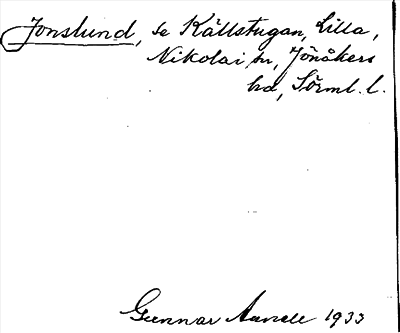 Jonslund, se Källstugan, Lilla,
Nikolai sn, Jönåkers
hd, Sörml. l.
Gunnar Amnell 1933